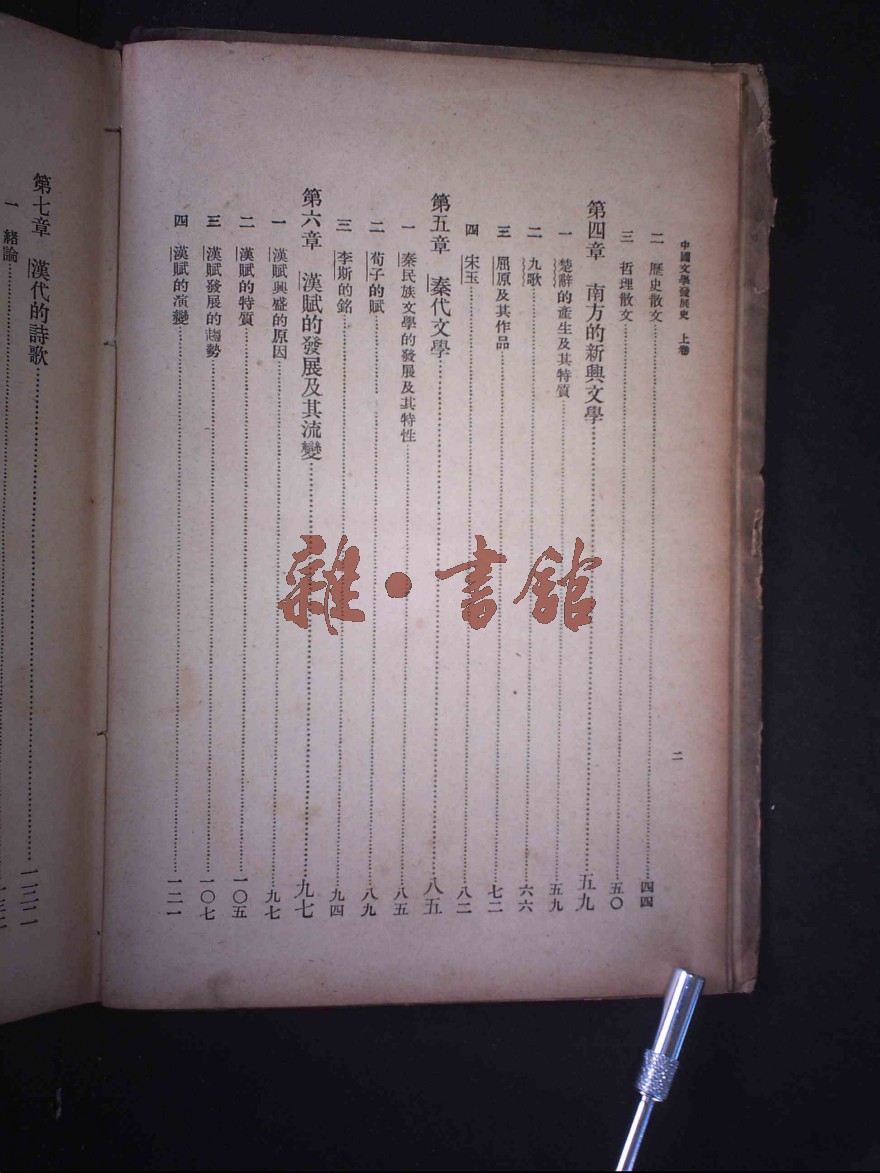 中國文學發展史 上卷
二
二 歷史散文 四四
三 哲理散文 五〇
第四章 南方的新興文學 五九
一 楚辭的產生及其特質 五九
二 九歌 六六
三 屈原及其作品 七二
四 宋玉 八二
第五章 秦代文學 八五
一 秦民族文學的發展及其特性 八五
二 荀子的賦 八九
三 李斯的銘 九四
第六章 漢賦的發展及其流變 九七
一 漢賦興盛的原因 九七
二 漢賦的特質 一〇五
三 漢賦發展的趨勢 一〇七
四 漢賦的演變 一二一
第七章 漢代的詩歌 一三二
一 緒論 一三二
雜·書館